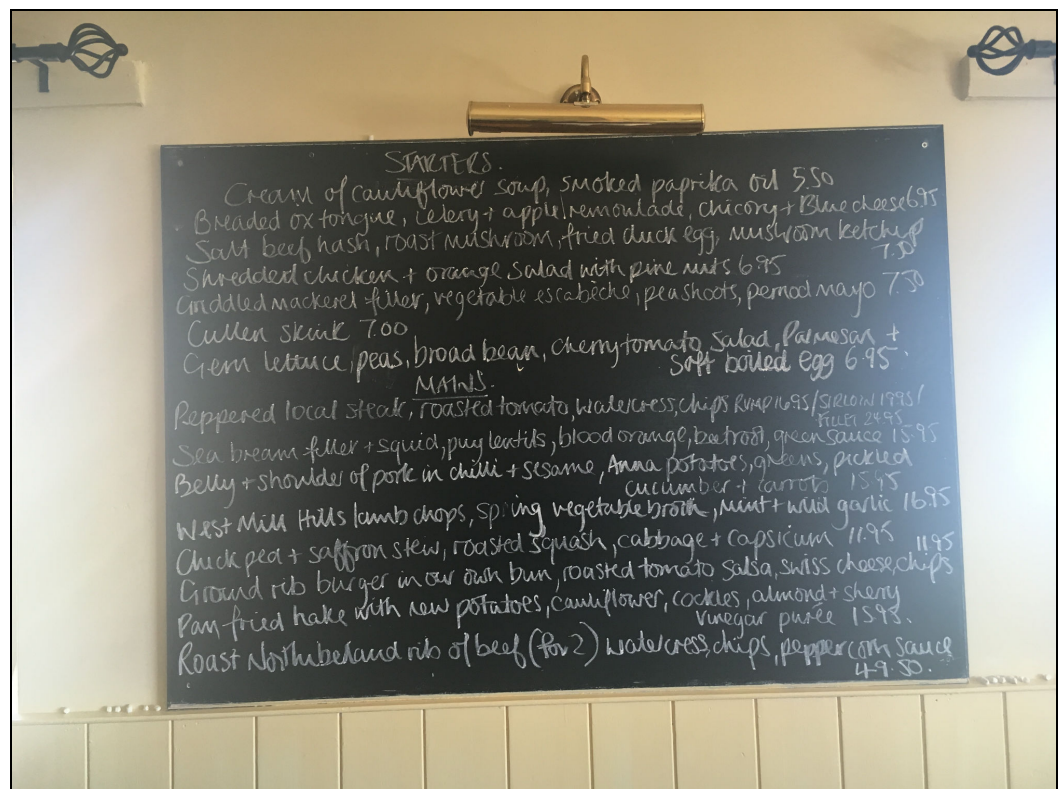 STARTERS.
Cream of cauliflower soup, smoked paprika oil 5.50
Breaded ox tongue, celery + apple remoulade, chicory + Blue cheese 6.95
Salt beef hash, roast mushroom, fried duck egg, mushroom ketchup
7.50
Shredded chicken + orange salad with pine nuts 6.95
Griddled mackerel fillet, vegetable escabèche, peashoots, pernod mayo 7.50
Cullen skink 7.00
Gem lettuce, peas, broad bean, cherry tomato salad, Parmesan +
Soft boiled egg 6.95.
MAINS.
Peppered local steak, roasted tomato, watercress, chips RUMP 16.95 / SIRLOIN 19.95 /
FILLET 24.95
Sea bream fillet + squid, puy lentils, blood orange, beetroot, green sauce 15.95
Belly + shoulder of pork in chilli + sesame, Anna potatoes, greens, pickled
cucumber + carrots 15.95
West Mill Hills lamb chops, spring vegetable broth, mint + wild garlic 16.95
Chick pea + saffron stew, roasted squash, cabbage + capsicum 11.95
11.95
Ground rib burger in our own bun, roasted tomato salsa, swiss cheese, chips
Pan fried hake with new potatoes, cauliflower, cockles, almond + sherry
vinegar purée 15.95.
Roast Northumberland rib of beef (for 2) watercress, chips, peppercorn sauce
49.50.